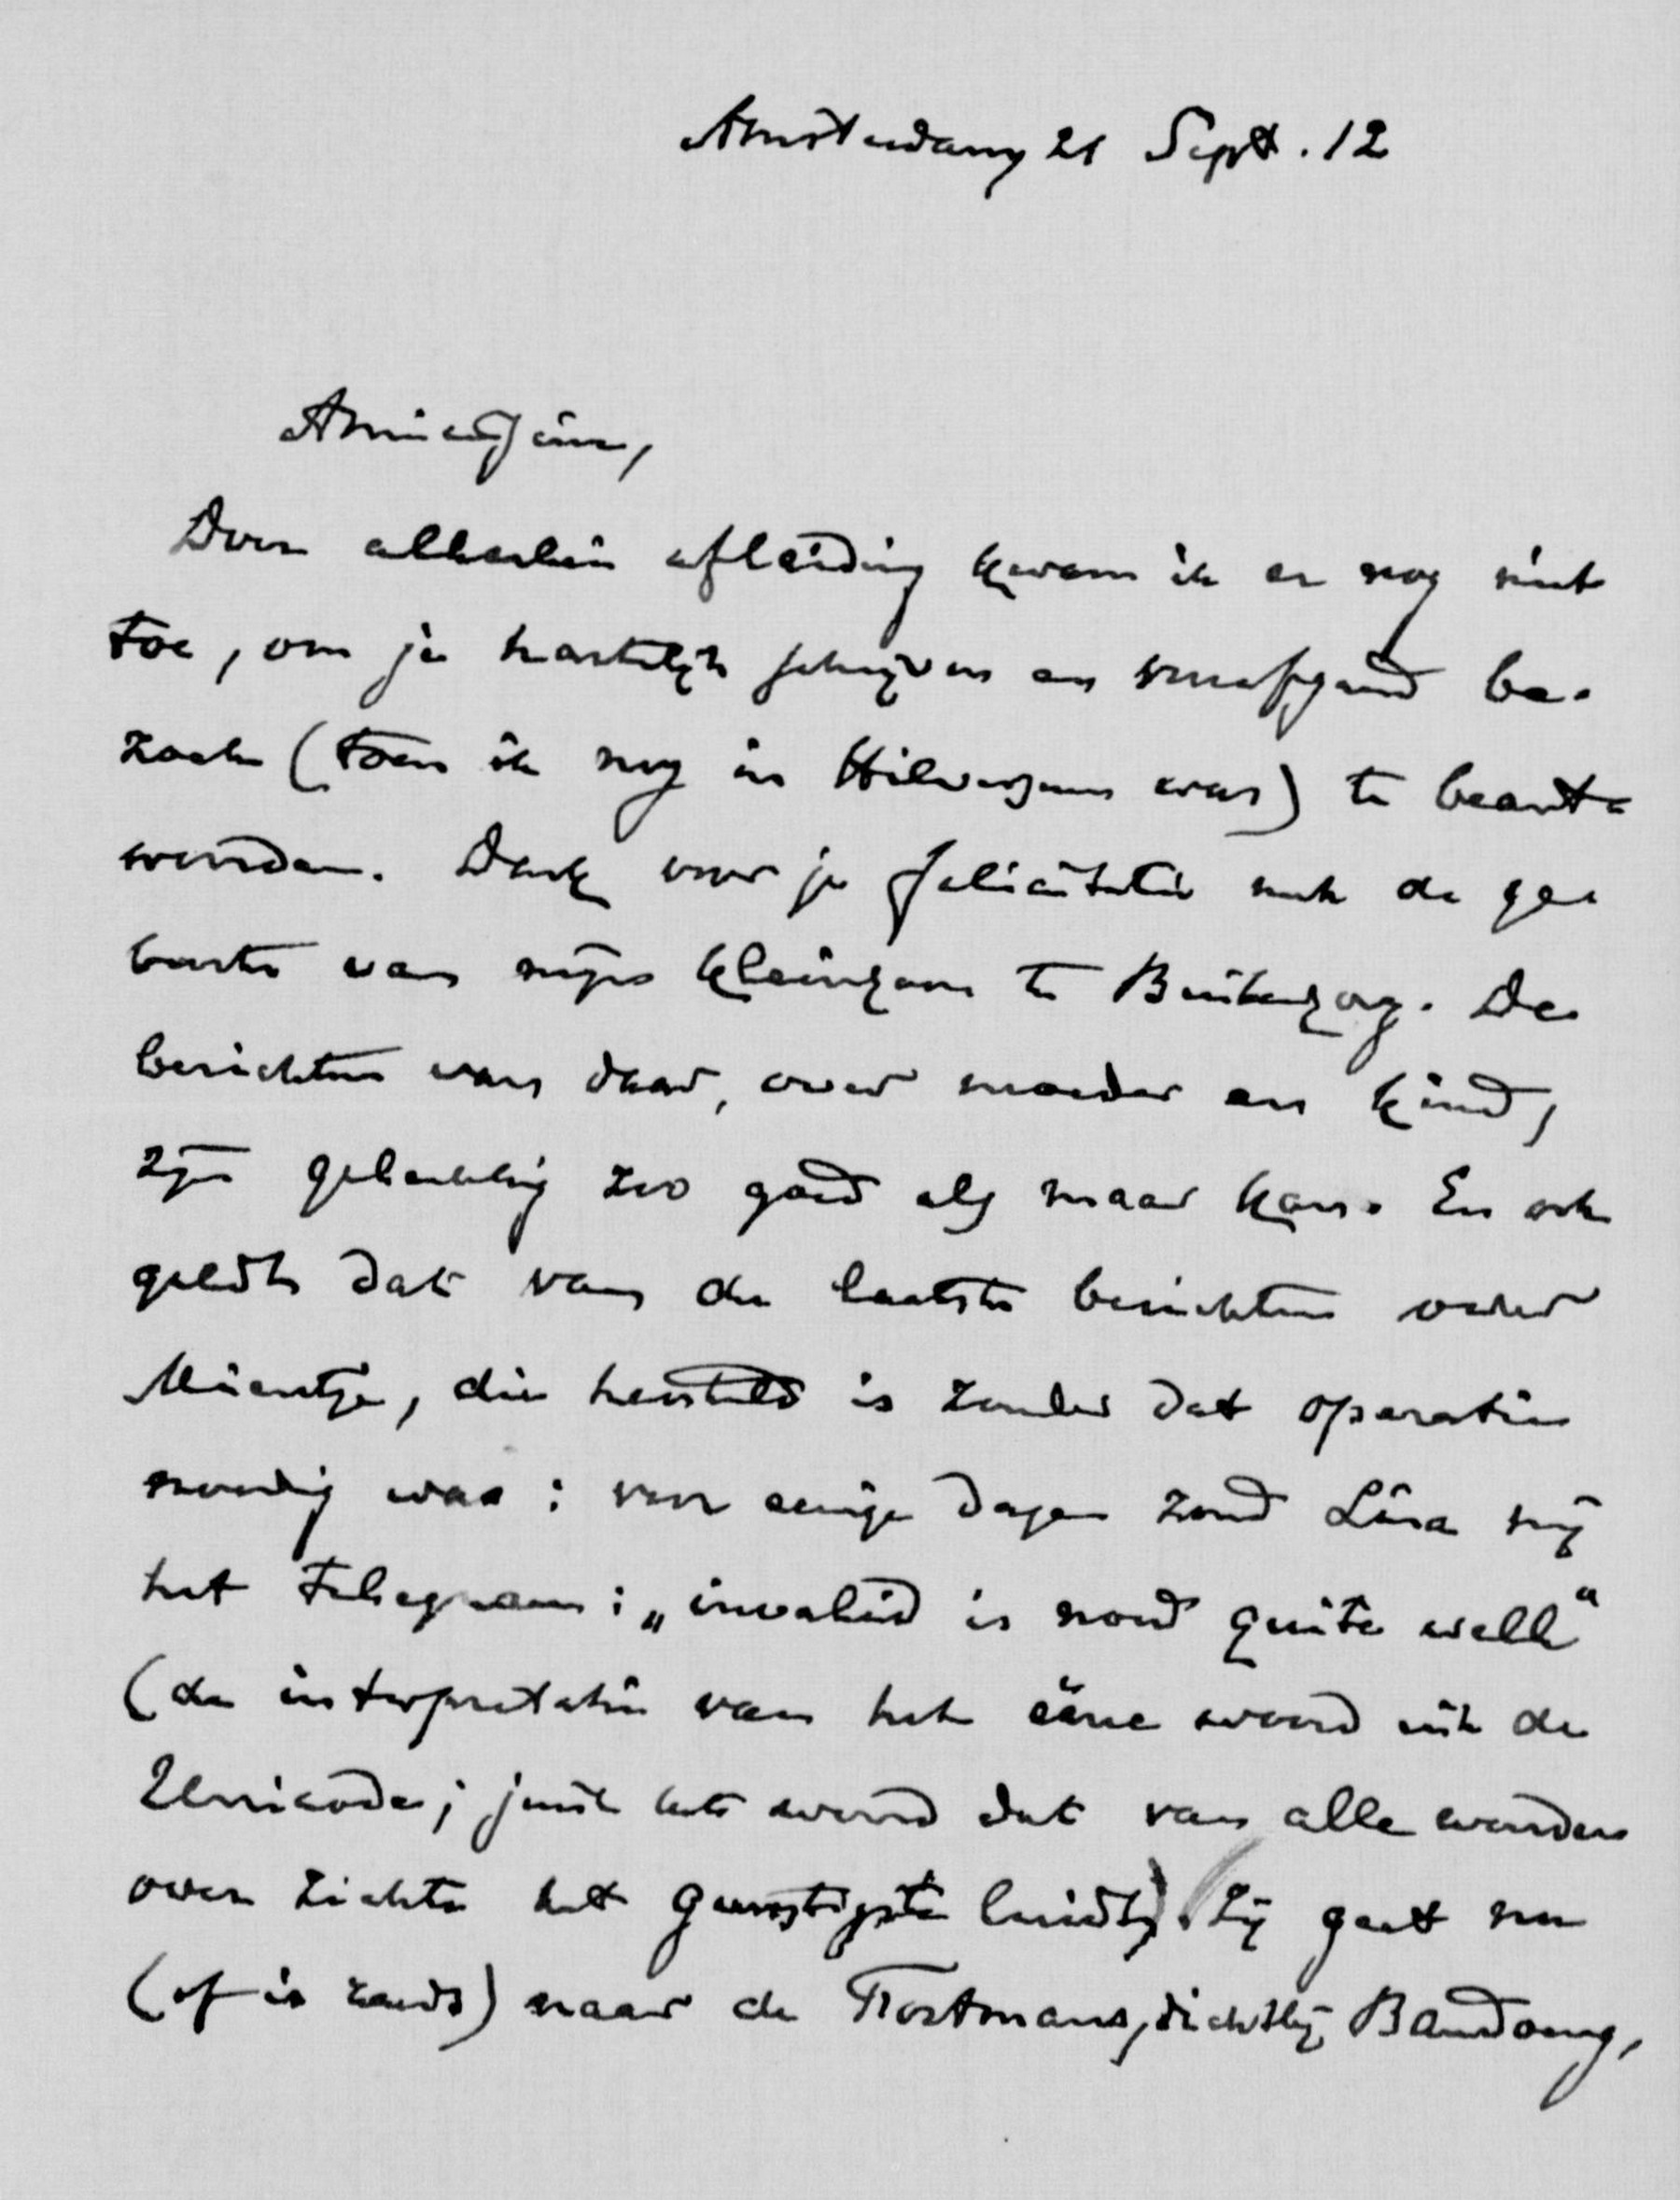 Amsterdam 21 Sept. 12
Amicissime,
Door allerlei afleiding kwam ik er nog niet
toe, om je hartelijk schrijven en voorafgaand be-
zoek (toen ik nog in Hilversum was) te beant-
woorden. Dank voor je felicitatie met de ge-
boorte van mijn kleinzoon te Buitenzorg. De
berichten van daar, over moeder en kind,
zijn gelukkig zoo goed als maar kan. En ook
geldt dat van de laatste berichten over
Mientje, die hersteld is zonder dat operatie
noodig was: voor eenige dagen zond Lisa mij
het telegram: „invalid is now quite well"
(de interpretatie van het ééne woord uit de
Unicode; juist het woord dat van alle woorden
over ziekte het gunstigste luidt). Zij gaat nu
(of is reeds) naar de Trostmans, dichtbij Bandoeng,